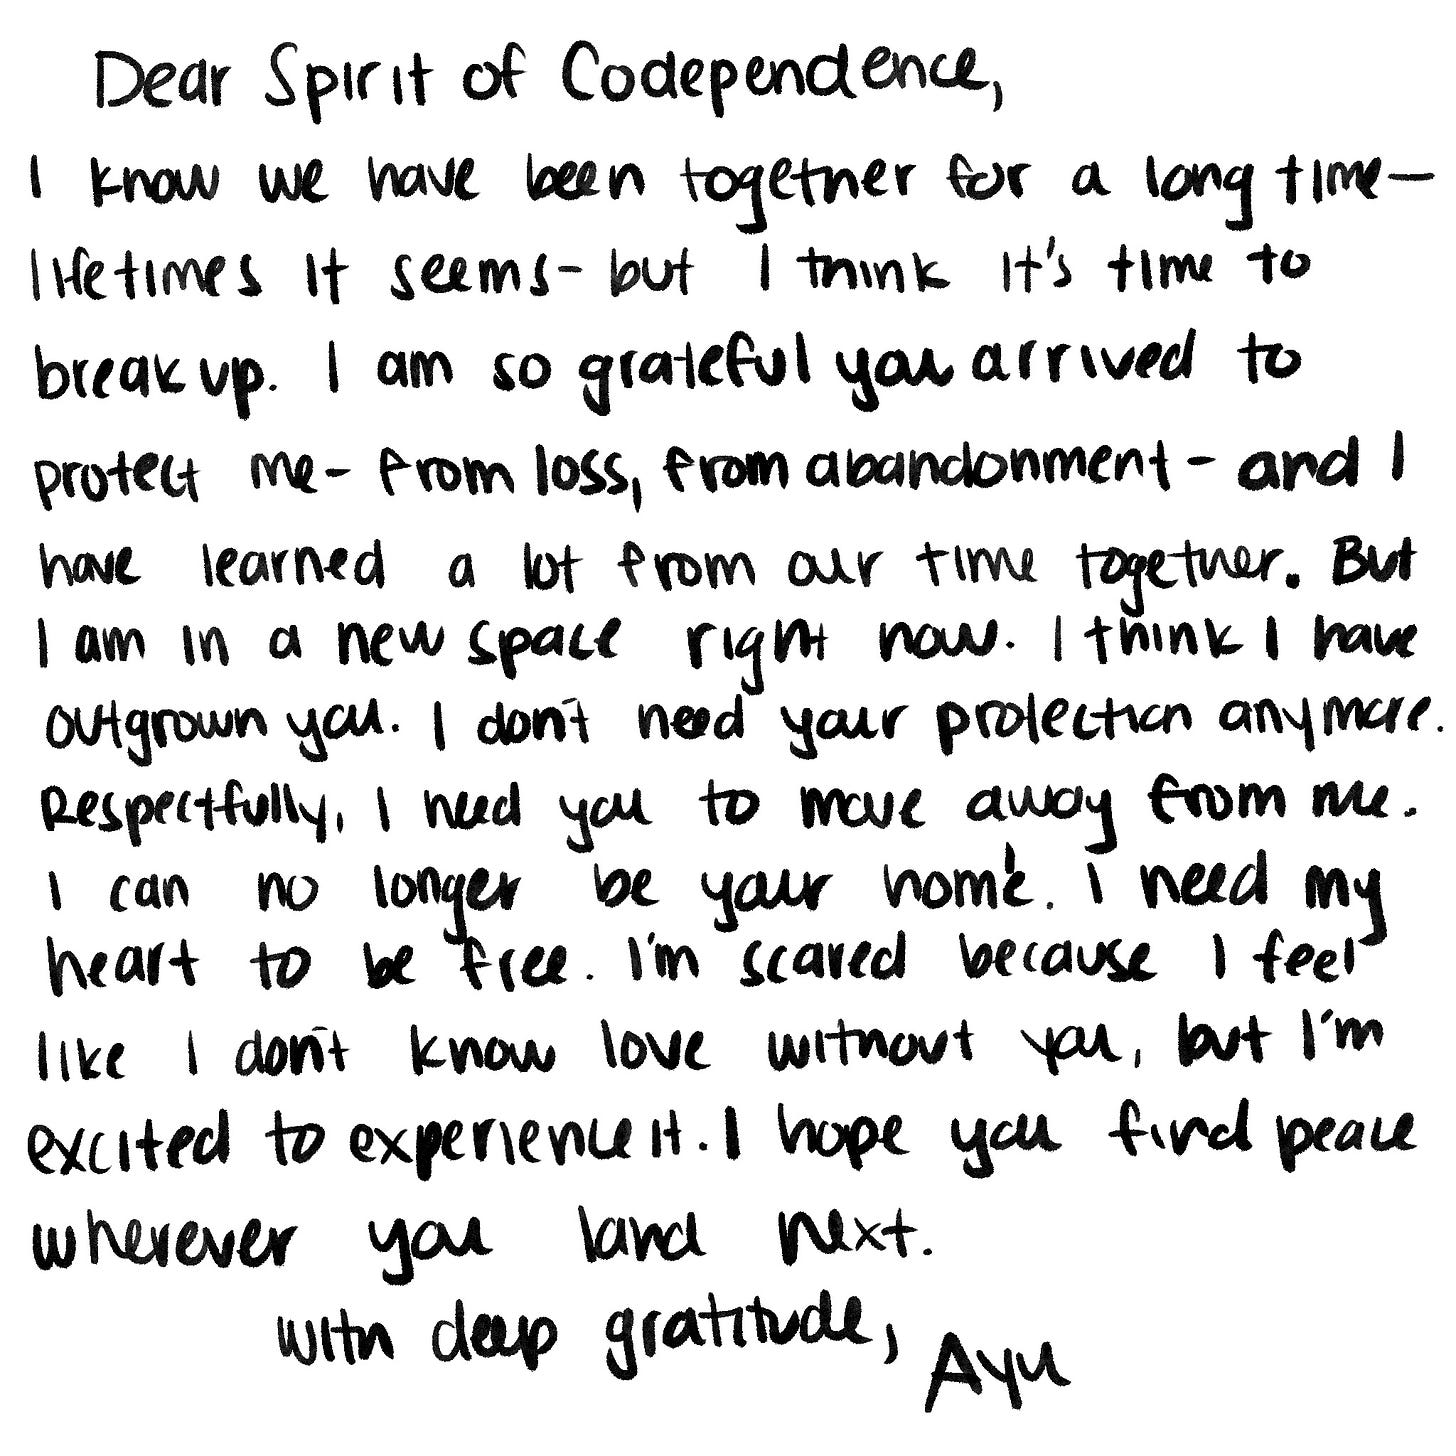 Dear Spirit of Codependence,
I know we have been together for a long time—
lifetimes it seems- but I think it's time to
break up. I am so grateful you arrived to
protect me- from loss, from abandonment - and I
have learned a lot from our time together. But
I am in a new space right now. I think I have
outgrown you. I don't need your protection anymore.
Respectfully, I need you to move away from me.
I can no longer be your home. I need my
heart to be free. I'm scared because I feel
like I don't know love without you, but I'm
excited to experience it. I hope you find peace
wherever you land next.
with deep gratitude,
Ayu